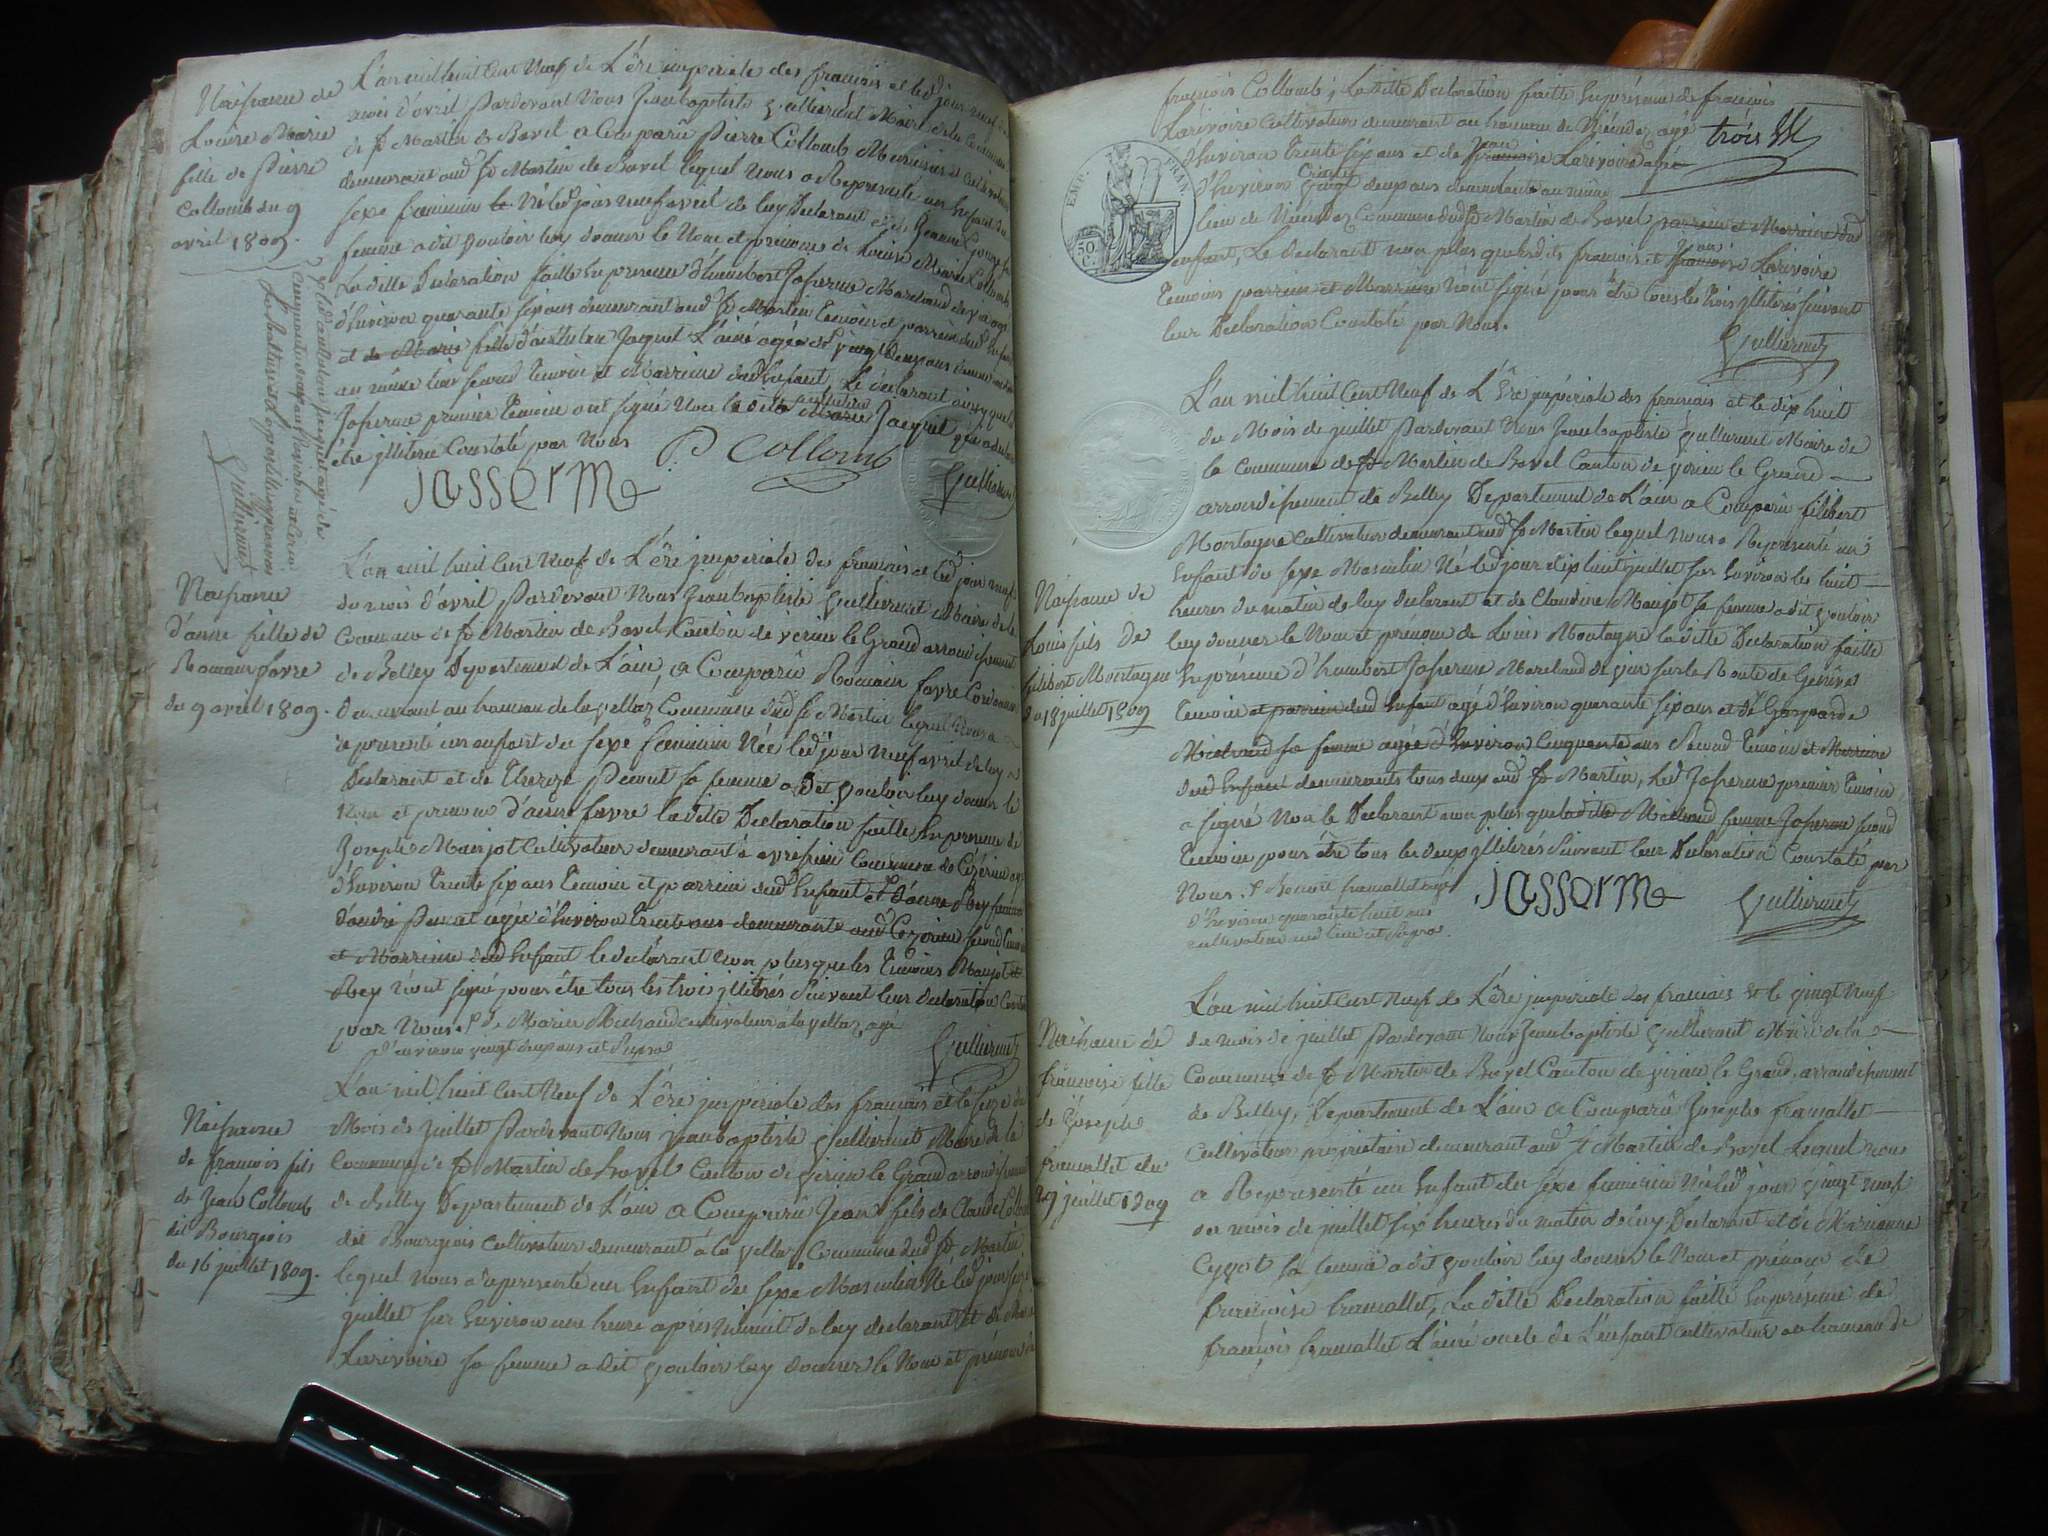 Naissance de
Louise Marie
fille de Pierre
Collomb du 9
avril 1809.
L'an mil huit Cent Neuf de L'ère impériale des français et led jour neuf du
mois d'avril Pardevant Nous Jeanbaptiste Gullierme Maire de la Commune
de St Martin de Bavel a Comparû Pierre Collomb Menuisier et cultivateur
demeurant aud St Martin de Bavel lequel nous a Représenté un Enfant du
sexe féminin Né led jour neuf avril de luy Déclarant et de Jeanne
femme a dit vouloir luy donner le Nom et prénom de Louise Marie Collomb
La ditte Déclaration faitte En présence d'humbert Josserme Marchand
d'Environ quarante six ans demeurant aud St Martin Temoin et parrein dud Enfant
et de Marie fille d'anthelme Jaquet L'ainé agée de vingt deux ans demeurant
au même lieu second Temoin et Marreine dud Enfant, Le déclarant ainsy que led
Josserme premier Temoin ont signé Non la ditte Marie Jacquet
être illiterée Constaté par Nous
P Collomb
Jasserme
Gulliermet
Gulliermet
Naissance
d'anne fille de
Romain favre
du 9 avril 1809.
L'an mil huit Cent Neuf de L'ère impériale des français et led jour neuf
du mois d'avril Pardevant Nous Jeanbaptiste Gulliermet Maire de la
Commune de St Martin de Bavel Canton de virieu le Grand arrondissement
de Belley Departement de L'ain, a Comparû Romain favre Cordonnier
demeurant au hameau de la vellaz Commune dud St Martin lequel Nous a
représenté un enfant du sexe féminin Née led jour Neuf avril de luy
Déclarant et de Therèze sa femme a dit vouloir luy donner le
Nom et prenom d'anne favre la ditte Déclaration faitte En présence de
Joseph Maujot Cultivateur demeurant à avressieu Commune de Cézérieu agé
d'Environ Trente six ans Temoin et parrein dud Enfant et d'anne Rey femme
d'andré agée d'Environ trente ans demeurante aud Cezerieu second Temoin
et Marreine dud Enfant le déclarant non plus que les Temoins Maujot et
Rey n'ont signé pour être tous les trois illitérés Suivant leur declaration Constaté
par Nous. de Marin Michaud cultivateur à la vellaz, agé
d'environ vingt deux ans et
Gulliermet
Naissance
de françois fils
de Jean Collomb
dit Bourgeois
du 16 juillet 1809.
L'an mil huit Cent Neuf de L'ère impériale des français et le seize du
Mois de juillet Pardevant Nous Jeanbaptiste Gulliermet Maire de la
Commune de St Martin de Bavel Canton de virieu le Grand arrondissement
de Belley Departement de L'ain a Comparû Jean fils de Claude Collomb
dit Bourgeois cultivateur demeurant à la vellaz Commune dud St Martin
lequel nous a représenté un Enfant du sexe Masculin Né led jour seize
juillet sur Environ une heure après minuit de luy déclarant et de
Larivoire sa femme a dit vouloir luy donner le Nom et prénom de
françois Collomb, La ditte Declaration faitte En présence de françois
Larivoire Cultivateur demeurant au hameau de agé
trois
d'Environ trente six ans et de Jean Larivoire agé
d'Environ deux ans demeurante au même
lieu de Commune dud St Martin de Bavel parrein et Marreine dud
enfant, Le déclarant non plus que lesdits françois et Larivoire
Temoins parrein et Marreine n'ont signé pour être tous les trois illitérés suivant
leur Declaration Constaté par Nous.
Gulliermet
EMP. FRAN
50
Naissance de
Louis fils de
filibert Montagne
du 18 juillet 1809
L'an mil huit Cent Neuf de L'Ère impériale des français et le dix huit
du Mois de juillet Pardevant Nous Jeanbaptiste Gulliermet Maire de
la Commune de St Martin de Bavel Canton de virieu le Grand
arrondissement de Belley Departement de L'ain a Comparû filibert
Montagne cultivateur demeurant aud St Martin lequel nous a Représenté un
Enfant du sexe Masculin Né led jour dix huit juillet sur Environ les huit
heures du matin de luy declarant et de Claudine Maujot sa femme a dit vouloir
luy donner le Nom et prénom de Louis Montagne la ditte Déclaration faitte
En présence d'humbert Josserme Marchand de vin sur la Route de Genêve
Temoin et parrein dud Enfant agé d'Environ quarante six ans et de Gasparde
Michaud sa femme agée d'Environ Cinquante ans Second Temoin et Marreine
dud Enfant demeurants tous deux aud St Martin, Led Josserme premier Temoin
a signé Non le Declarant non plus que la ditte Michaud femme Josserme second
Temoin pour être tous les deux illitérés Suivant leur Declaration Constaté par
Nous. Benoit framallet agé
d'Environ quarante huit ans
cultivateur aud lieu et
Jasserme
Gulliermet
Naissance de
françoise fille
de Joseph
framallet du
29 juillet 1809
L'an mil huit Cent Neuf de L'ère impériale des français et le vingt Neuf
du mois de juillet Pardevant Nous Jeanbaptiste Gulliermet Maire de la
Commune de St Martin de Bavel Canton de virieu le Grand, arrondissement
de Belley, Departement de L'ain a Comparû Joseph framallet
Cultivateur propriétaire demeurant aud St Martin de Bavel Lequel nous
a Représenté un Enfant du sexe féminin Né led jour vingt neuf
du mois de juillet six heures du matin de luy Declarant et de Marianne
Cyvot sa femme a dit vouloir luy donner le Nom et prénom de
françoise framallet, La ditte Declaration faitte En présence de
françois framallet L'ainé oncle de L'enfant cultivateur au hameau de